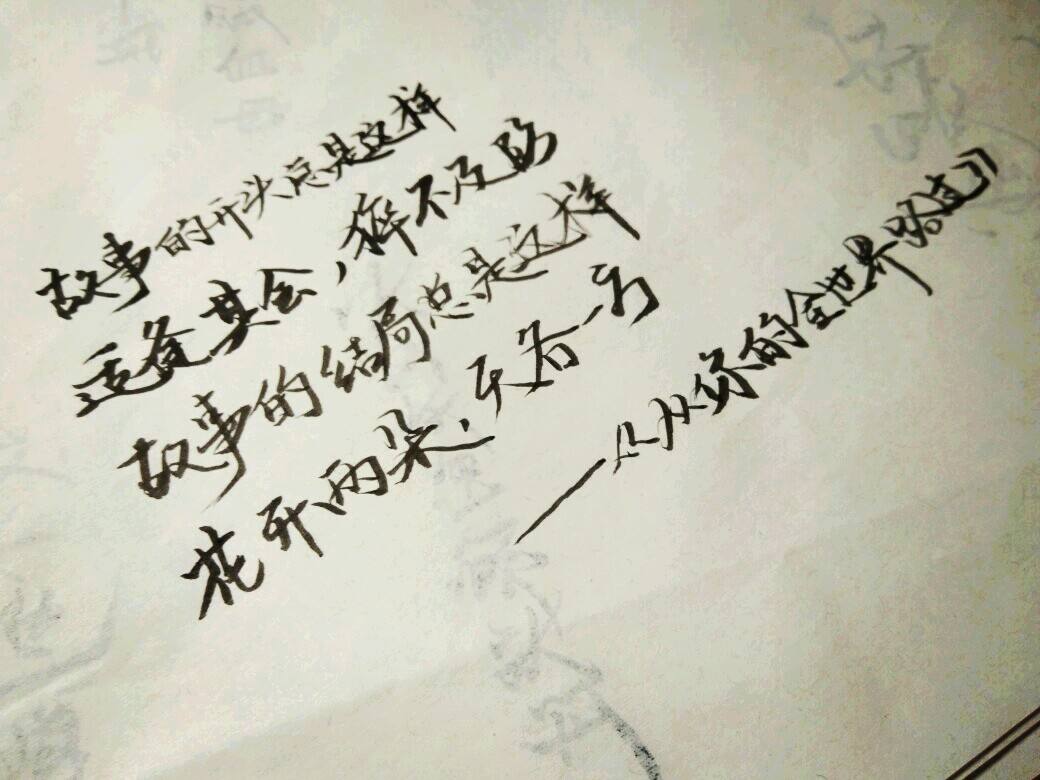 故事的开头总是这样
适逢其会,猝不及防
故事的结局总是这样
花开两朵,天各一方
——《从你的全世界路过》